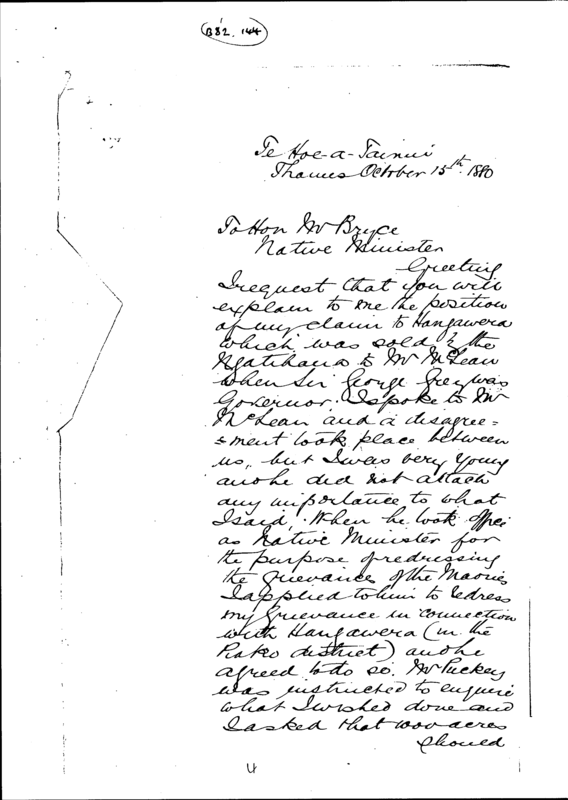 B82. 144
Te Hoe-a-Tainui
Thames October 15th. 1880
To Hon Mr Bryce
Native Minister
Greeting
I request that you will
explain to me the position
of my claim to Hangawera
which was sold by the
Ngatihaua to Mr McLean
when Sir George Grey was
Governor. I spoke to Mr
McLean and a disagree=
=ment took place between
us, but I was very young
and he did not attach
any importance to what
I said. When he took office
as Native Minister for
the purpose of redressing
the grievances of the Maories
I applied to him to redress
my grievance in connection
with Hangawera (in the
district) and he
agreed to do so. Mr Puckey
was instructed to enquire
what I wished done and
I asked that acres
should
4